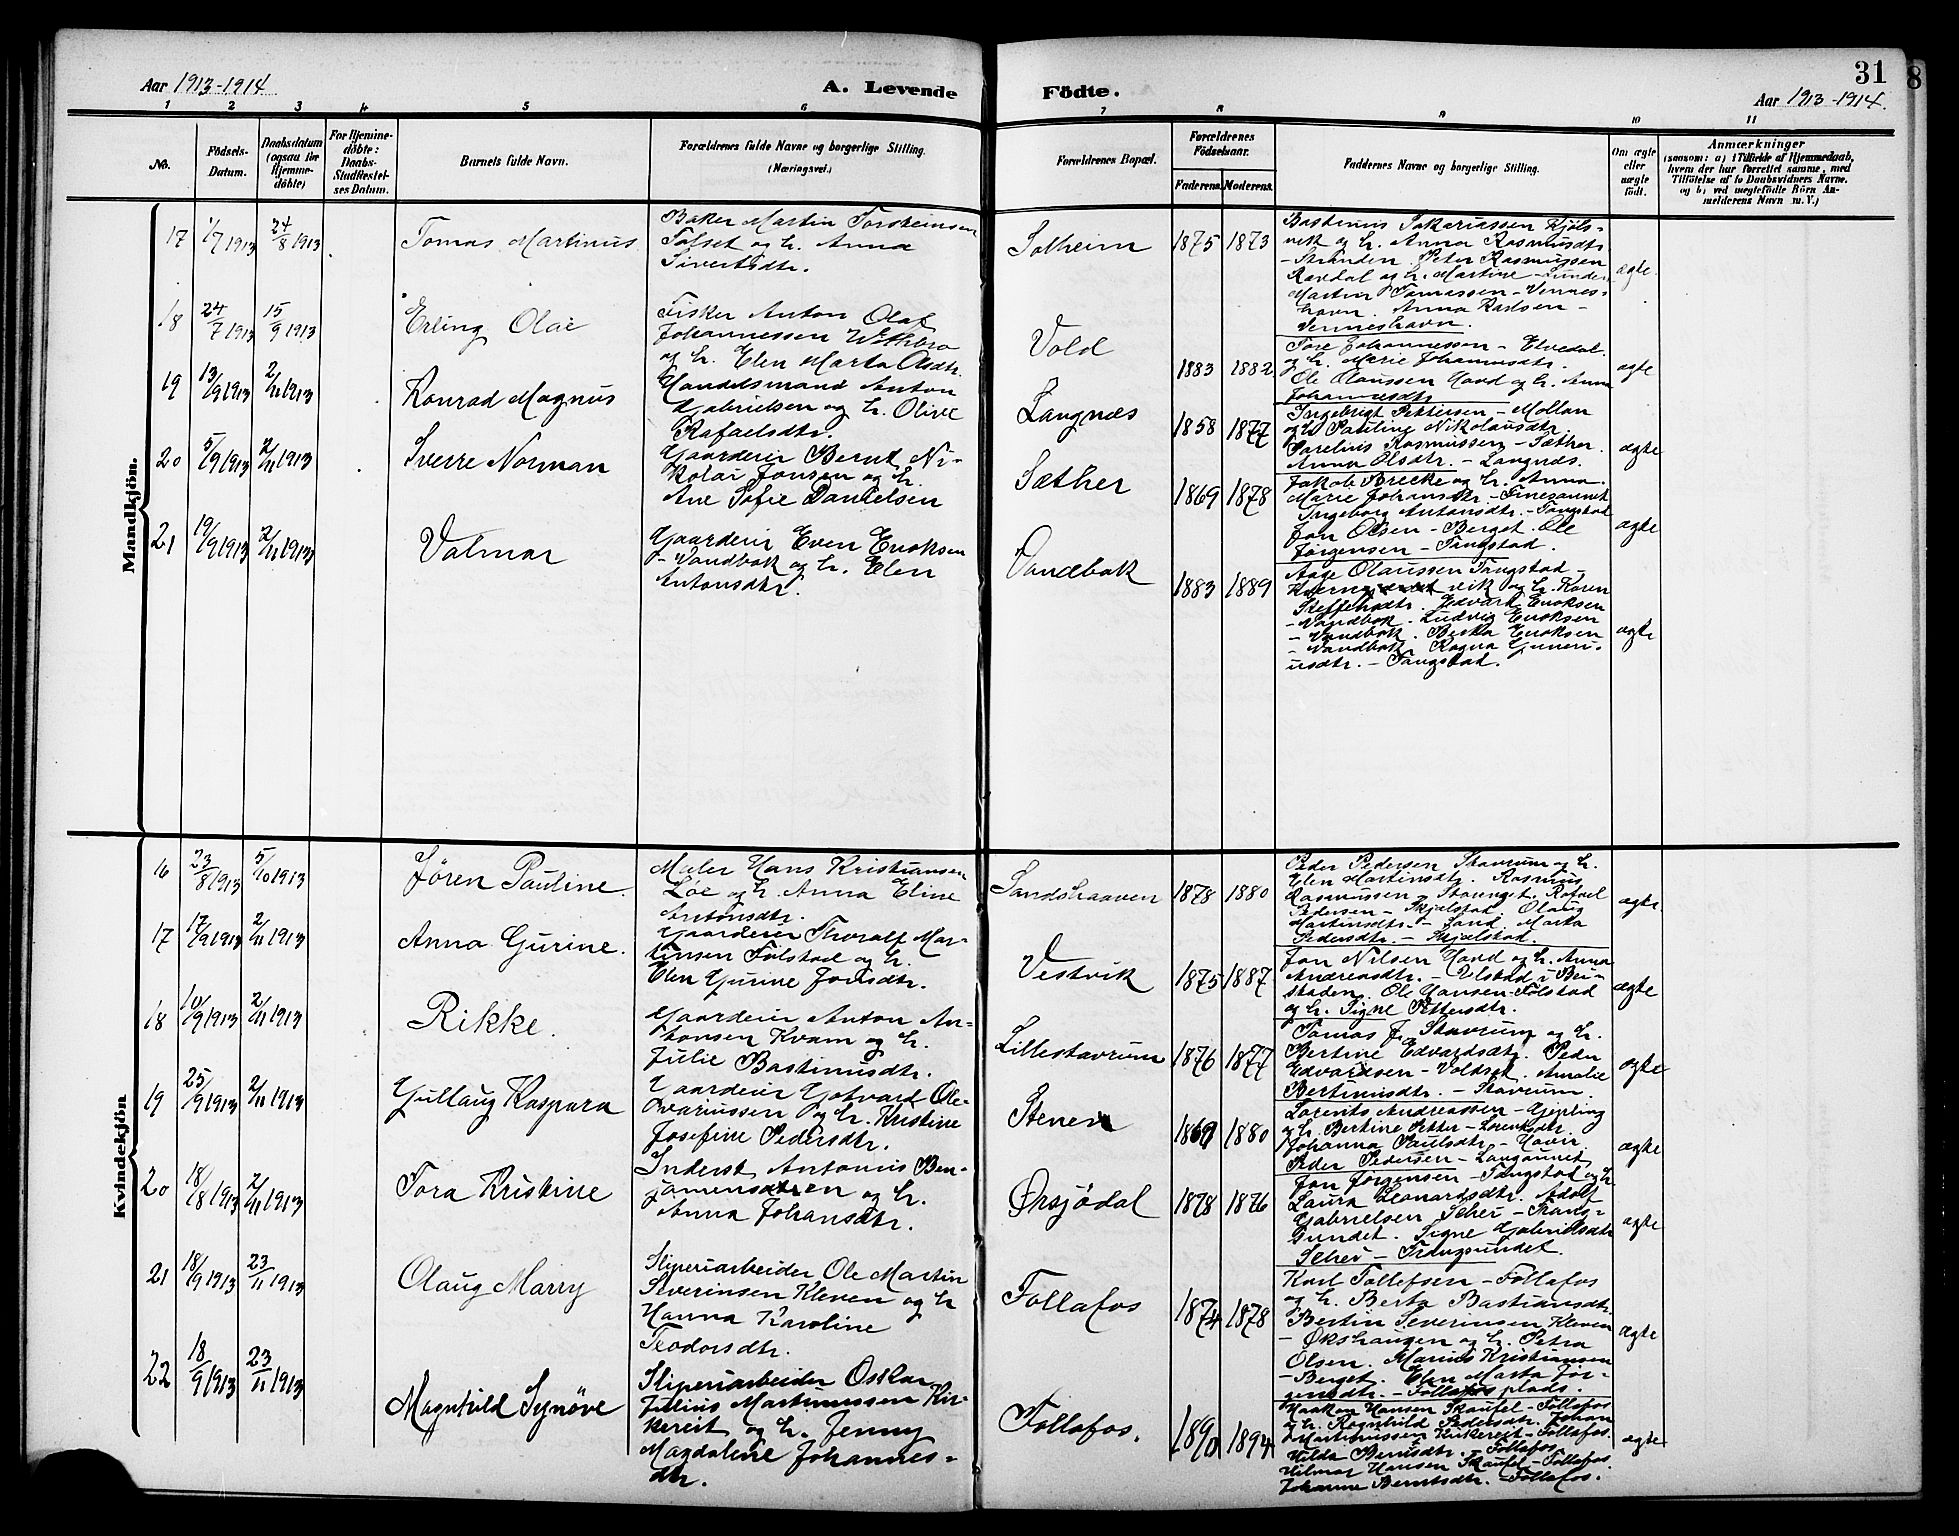 Aar 1913-1914
A. Levende
Födte.
31
8
Aar 1913-1914.
1 2 3 4 5 6 7 8 9 10 11
No.
Födsels-
Datum.
Daabsdatum
(ogsaa for
Hjemme-
döbte)
For Hjemme-
döbte:
Daabs-
Stadfæstel-
ses Datum.
Barnets fulde Navn.
Forældrenes fulde Navne og borgerlige Stilling.
(Næringsvei.)
Forældrenes Bopæl.
Forældrenes
Födselsaar.
Faderens. Moderens.
Faddernes Navne og borgerlige Stilling.
Om ægte
eller
uægte
födt.
Anmærkninger
(saasom: a) i Tilfælde af Hjemmedaab,
hvem der har forrettet samme, med
Tilföielse af to Daabsvidners Navne.
og b) ved uægtefödte Börn An-
melderens Navn m. V.)
Mandkjön.
17 1/7 1913 24/8 1913
Tomas Martinus
Baker Martin Torsteinsen
Tofset og h. Anna
Sivertsdtr.
Solheim
1875 1873
Bastinus Sakariassen Kjöls-
vik og h. Anna Rasmusdtr.
- Stranden. Peter Rasmussen
Rordal og h. Martine - Sunde
Martin Tomassen - Vennes-
havn. Anna Karlsen -
Venneshavn.
ægte.
18 24/7 1913 15/9 1913
Erling Olae
Fisker Anton Olaf
Johannessen
og h. Elen Marta Olsdtr.
Vold
1883 1882
Tore Johannessen - Elvedal
og h. Marie Johannesdtr.
Ole Olaussen Hovd og h. Anna
Johannesdtr
ægte
19 13/9 1913 2/11 1913
Konrad Magnus
Handelsmand Anton
Gabrielsen og h. Olive
Rafaelsdtr.
Langnæs
1858 1877
Ingebrigt Pettersen - Mollan
og h. Pauline Nikolausdtr.
Sorelius Rasmussen - Sæther
Anna Olsdtr. - Langnæs.
ægte
20 5/9 1913 2/11 1913
Sverre Norman
Gaardeier Bernt Ni-
kolai Jonsen og h.
Ane Sofie Danielsen
Sæther
1869 1878
Jakob Brekke og h. Anna
Marie Johansdtr. - Finesaunet
Ingeborg Antonsdtr. - Tangstad
Jon Olsen - Berget. Ole
Jørgensen - Tangstad.
ægte
21 19/9 1913 2/11 1913
Valmar
Gaardeier Even Enoksen
- Vandbak og h. Elen
Antonsdtr.
Vandbak
1883 1889
Aage Olaussen Tangstad -
vik og h. Karen
Steffensdtr. Edvart Enoksen
- Vandbak. Ludvig Enoksen
- Vandbak. Berta Enoksen
- Vandbak. Ragna Guneri-
usdtr. - Tangstad.
ægte
Kvindekjön
16 23/8 1913 5/10 1913
Jøren Pauline.
Maler Hans Kristiansen
Löe og h. Anna Eline
Antonsdtr.
Sandshaaven
1878 1880
Peder Pedersen Stavrum og h.
Elen Martinsdtr. Rasmus
Rasmussen - Stavenget. Rafael
Pedersen - Skjelstad. Olaug
Martinsdtr. - Sand. Marta
Pedersdtr. - Skjelstad.
ægte
17 17/9 1913 2/11 1913
Anna Gurine.
Gaardeier Thoralf Mar-
tinsen Folstad og h.
Elen Gurine Jonsdtr.
Vestvik
1875 1887
Jon Nilsen Hovd og h. Anna
Andreasdtr. - Elstad i Bei-
staden. Ole Hansen - Folstad
og h. Signe Pettersdtr.
ægte
18 10/9 1913 2/11 1913
Rikke.
Gaardeier Anton An-
tonsen Kvam og h.
Julie Bastinusdtr.
Lillestavrum
1876 1877
Tomas J. Stavrum og h.
Bertine Edvardsdtr. Peder
Edvardsen - Voldset. Amalie
Bertinusdtr. - Stavrum.
ægte
19 25/9 1913 2/11 1913
Gullaug Kaspara
Gaardeier Gotvard Ole-
variussen og h. Kristine
Josefine Pedersdtr.
Stenen
1869 1880
Lorents Andreassen - Gjepling
og h. Bertine Petter - Lorentsdtr.
Johanna Paulsdtr. - Havir
Peder Pedersen - Langaunet
ægte
20 18/8 1913 2/11 1913
Tora Kristine
Inderst Antonis Ben-
jamensen og h.
Anna Johansdtr.
Ørsjödal
1878 1876
Jon Jørgensen - Tangstad og h.
Laura Leonardsdtr. Adolf
Gabrielsen Selnes - Trang-
sundet. Signe Gabrielsdtr.
- Trangsundet.
ægte
21 18/9 1913 23/11 1913
Olaug Marry
Sliperiarbeider Ole Martin
Severinsen Kleven og h
Hanna Karoline
Teodorsdtr.
Follafos
1874 1878
Karl Tollefsen - Follafos
og h. Berta Bastiansdtr.
Bertin Severinsen Kleven
- Økshaugen og h. Petra
Olsen. Marius Kristiansen
- Berget. Elen Marta Jör-
gensdtr. - Follafos plads.
ægte
22 18/9 1913 23/11 1913
Magnhild Synöve
Sliperiarbeider Oskar
Julius Martinussen Kir-
kereit og h. Jenny
Magdalene Johannes-
dtr.
Follafos.
1890 1894
Haakon Hansen Skaufel - Follafos
og h. Ragnhild Pedersdtr. Johan
Martinussen Kirkereit - Follafos.
Hilda Berntsdtr. - Follafos
Hilmar Hansen Skaufel - Follafos.
Johanne Berntsdtr. - Follafos.
ægte